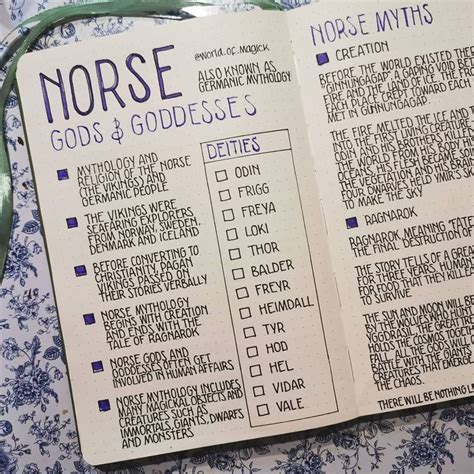 NORSE
@WORLD_OF_MAGICK
ALSO KNOWN AS
GERMANIC MYTHOLOGY
GODS & GODDESSES
MYTHOLOGY AND
RELIGION OF THE NORSE
(THE VIKINGS) AND
GERMANIC PEOPLE
THE VIKINGS WERE
SEAFARING EXPLORERS
FROM NORWAY, SWEDEN,
DENMARK AND ICELAND
BEFORE CONVERTING TO
CHRISTIANITY, PAGAN
VIKINGS PASSED ON
THEIR STORIES VERBALLY
NORSE MYTHOLOGY
BEGINS WITH CREATION
AND ENDS WITH THE
TALE OF RAGNAROK
NORSE GODS AND
GODDESSES OFTEN GET
INVOLVED IN HUMAN AFFAIRS
NORSE MYTHOLOGY INCLUDES
MANY MAGICKAL OBJECTS AND
CREATURES SUCH AS
IMMORTALS, GIANTS, DWARFS
AND MONSTERS
DEITIES
ODIN
FRIGG
FREYA
LOKI
THOR
BALDER
FREYR
HEIMDALL
TYR
HOD
HEL
VIDAR
VALE
NORSE MYTHS
CREATION
BEFORE THE WORLD EXISTED THE
"GINNUNGAGAP", A GAPING VOID
FIRE AND THE LAND OF ICE. THE
EACH PLACE CREPT TOWARD EACH
MET IN GINNUNGAGAP
THE FIRE MELTED THE ICE AND
INTO THE FIRST LIVING CREATURE
ODIN AND HIS BROTHERS KILLED
WORLD FROM HIS BODY
OCEANS, HIS FLESH BECAME THE
THE VEGETATION AND HIS
FOUR DWARVES HELD YMIR'S
TO MAKE THE SKY
RAGNAROK
RAGNAROK, MEANING "FATE
THE FINAL DESTRUCTION OF
THE STORY TELLS OF A GREAT
FOR THREE YEARS, HUMANS
FOR FOOD THAT THEY KILL
TO SURVIVE
THE SUN AND MOON WILL
BY THE WOLVES WHO
YGGDRASIL, THE GREAT
HOLDS THE COSMOS TOGETHER
FALL. ALL THE GODS WILL
BATTLE WITH THE GIANTS
CREATURES THAT EMERGE
THE CHAOS.
THERE WILL BE NOTHING